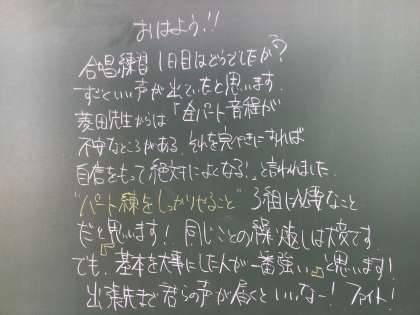 おはよう!!
合唱練習1日目はどうでしたか?
すごくいい声が出ていたと思います.
菱田先生からは「全パート音程が
不安なところがある.それを完ぺきにすれば
自信をもって絶対によくなる!」と言われました.
"パート練をしっかりやること" 3組に必要なこと
だと思います! 同じことの繰り返しは大変です.
でも、"基本を大事にした人が一番強い"と思います!
出張先まで君らの声が届くといいなー! ファイト!